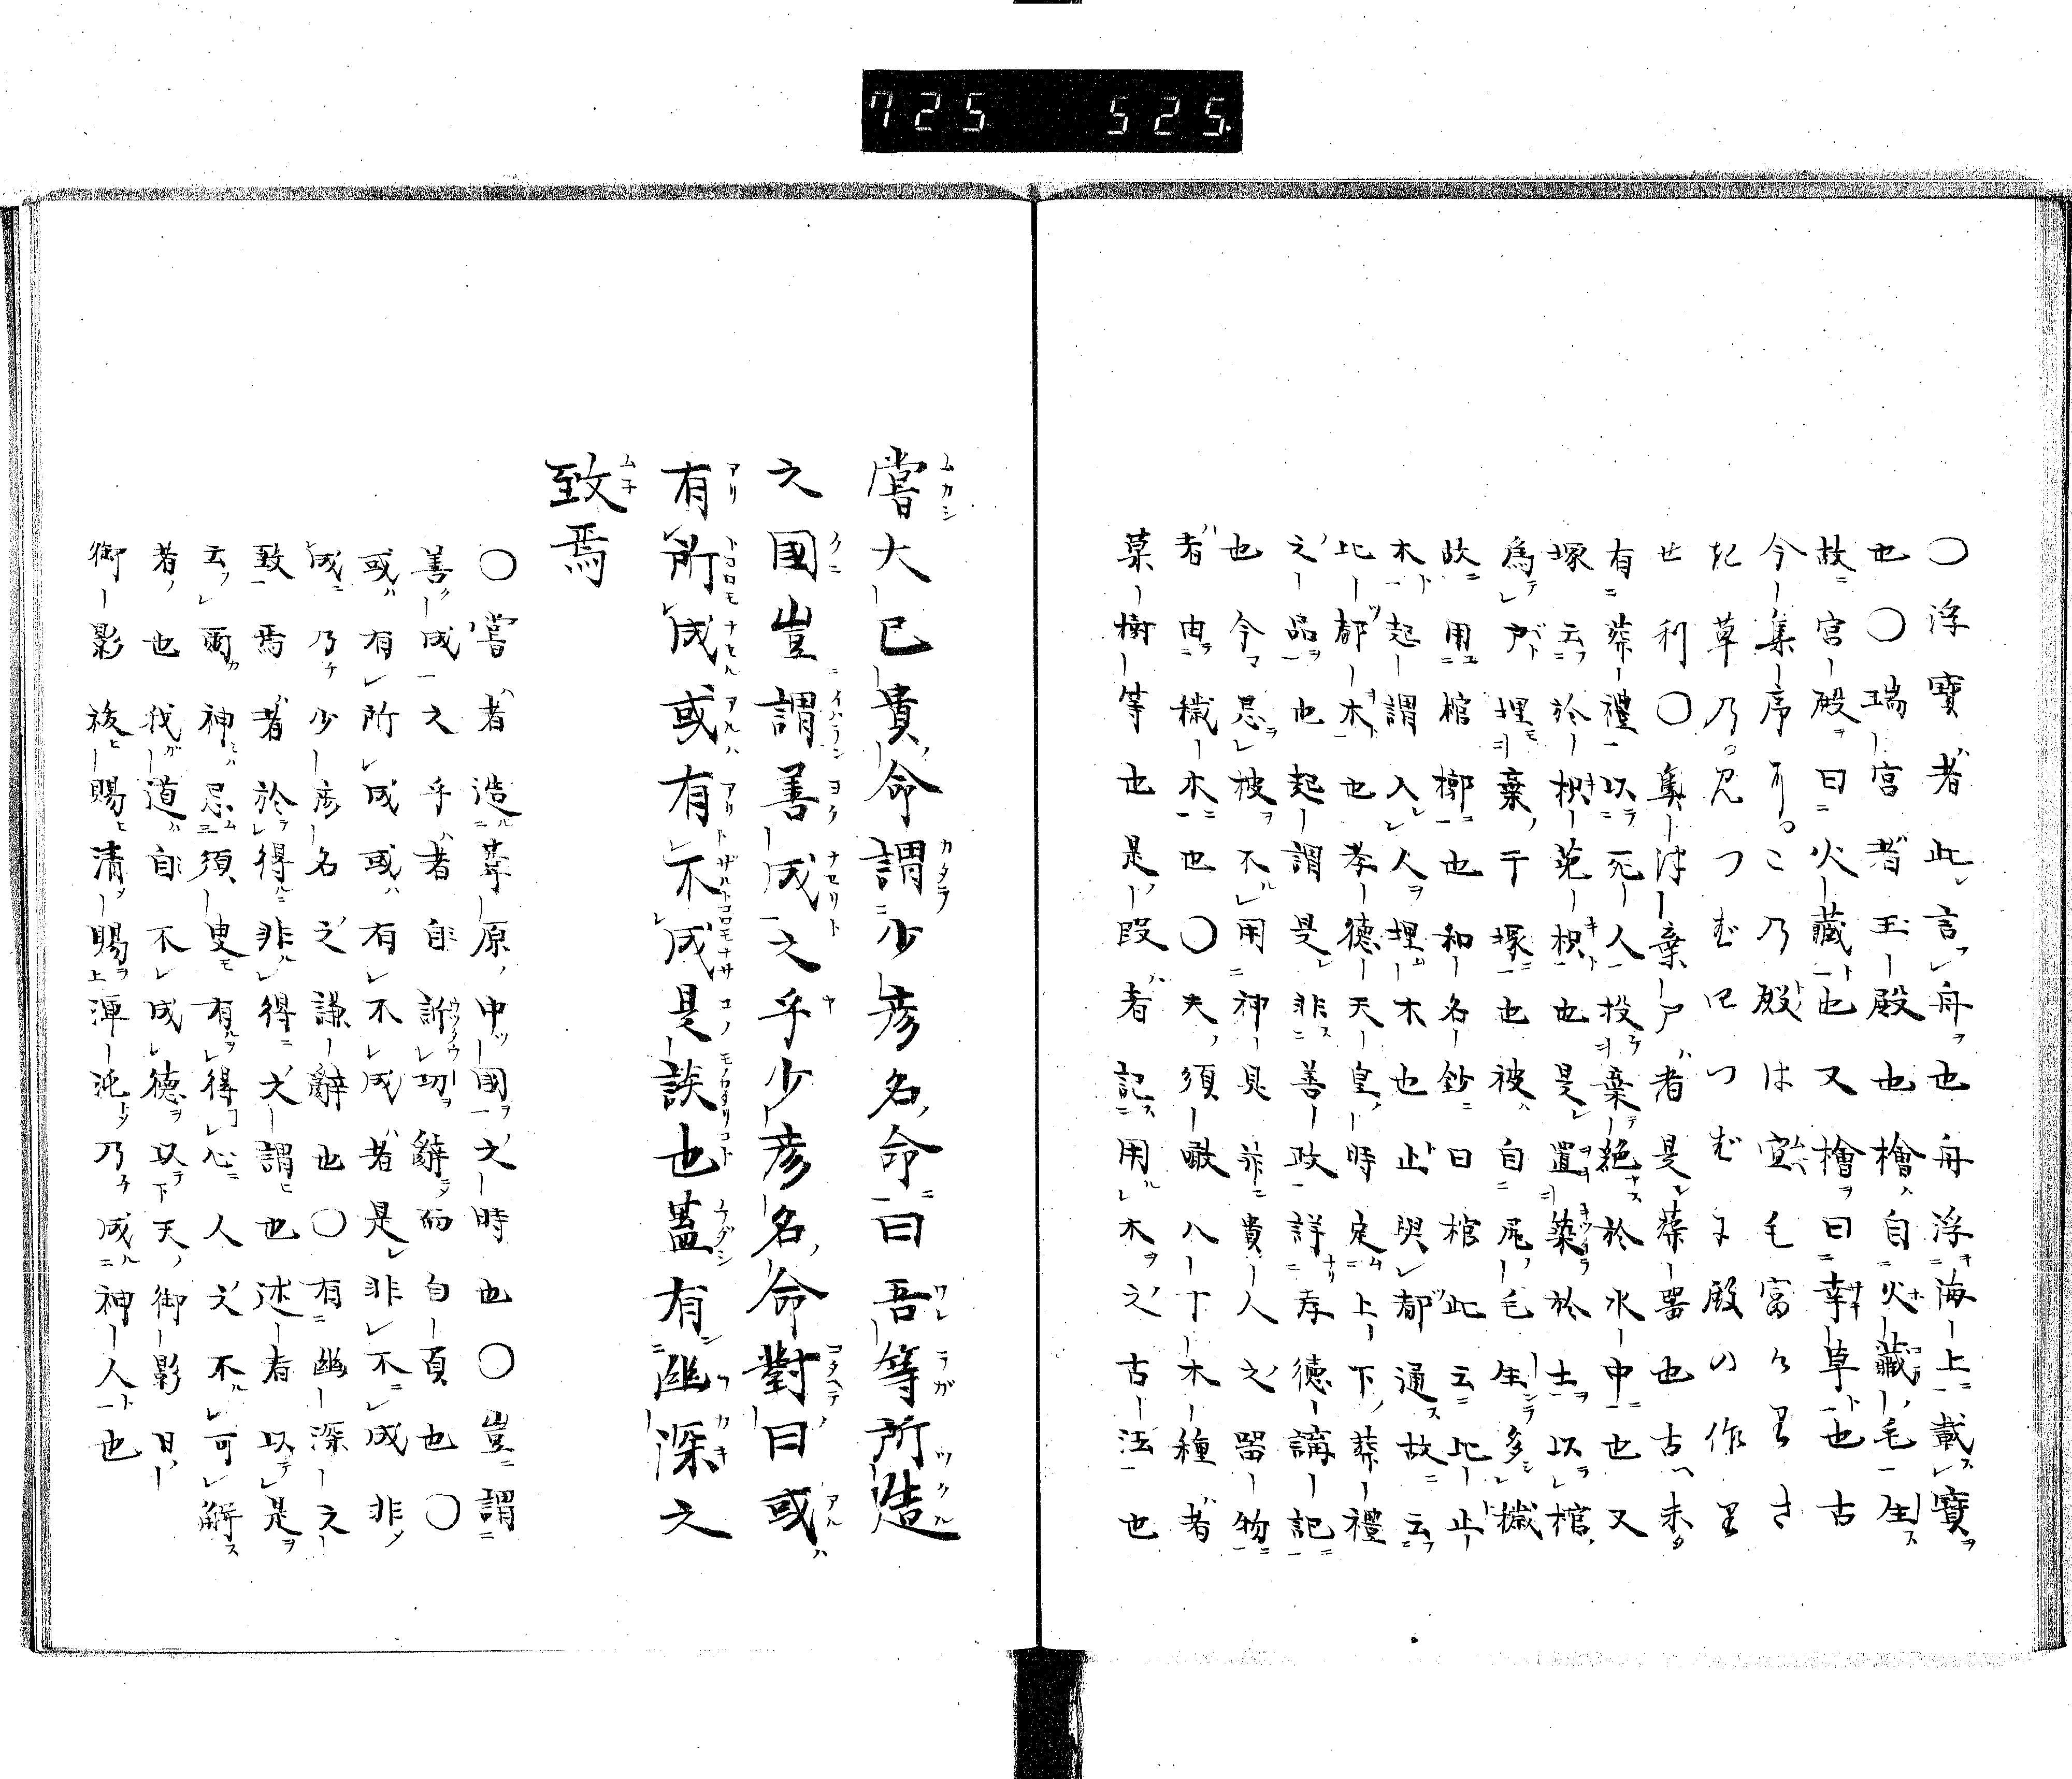 725 525
○浮寶者此言舟也舟浮海上載寶
也○瑞宮者玉殿也檜自火藏毛生
故宮殿曰火藏也又檜曰幸草也古
今集序可こ乃殿は宜毛富
草乃つむ殿の作
世利○奥津棄戸者是葬器也古未
有葬禮以死人投棄絶於水中也又
塚云於枳苑枳也是置築於土以棺
爲戸埋棄于塚也被自尾毛生多穢
故用棺槨也和名鈔曰棺此云比止
木起謂入人埋木也止與都通故云
比都木也孝德天皇時定上下葬禮
之品也起謂是非善政詳孝德講記
也今忌被不用神具並貴人之器物
者由穢木也○夫須噉八十木種者
菓樹等也是段者記用木之古法也
嘗大己貴命謂少彦名命曰吾等所造
之國豈謂善成之乎少彦名命對曰或
有所成或有不成是談也蓋有幽深之
致焉
○嘗者造葦原中國之時也○豈謂
善成之乎者自訴功辭而自負也○
或有所成或有不成者是非不成非
成乃少彦名之謙辭也○有幽深之
致焉者於得非得文謂也述者以是
云爾神忌須叟有得心人之不可解
者也我道自不成德以天御影日
御影祓賜清賜渾沌乃成神人也